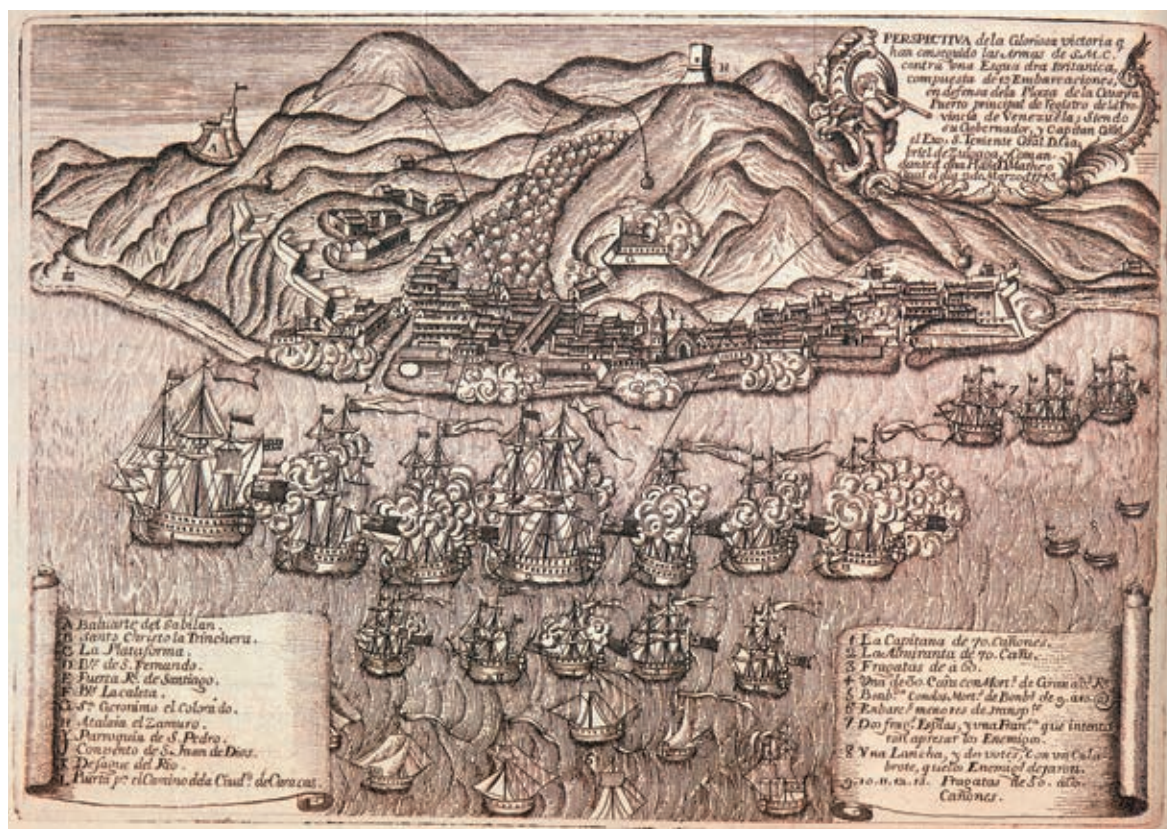 PERSPECTIVA de la Gloriosa victoria q
han conseguido las Armas de S.M.C.
contra una Esquadra Britanica,
compuesta de 12 Embarcaciones,
en defensa dela Plaza de la Guayra
Puerto principal de registro de la Pro-
vincia de Venezuela; Siendo
su Gobernador, y Capitan Gral.
el Exo. S. Teniente Gral. D. Ga-
briel de Zuloaga, Coman-
dante Plaza D. Matheo
Gual el dia de Marzo 1743.
H
A
G
7
8
A Baluarte del Gabilan.
B Santo Christo la Trinchera.
C La Plataforma.
D Bte. de S. Fernando.
E Fuerza Rl. de Santiago.
F Lacaleta.
G Sn. Geronimo el Colorado.
H Atalaia el Zamuro.
Y Parroquia de S. Pedro.
J Convento de S. Juan de Dios.
K Desague del Rio.
L Puerta pa. el Camino dela Ciudd. de Caracas.
1 La Capitana de 70. Cañones.
2 La Almiranta de 70. Cañs.
3 Fragatas de à 60.
4 Una de 60. Cañs con Mortº. de
5 Bombª. Condos Mortº. de Bombª. de 9. a 10.
6 Embarcs. menores de transpte.
7 Dos fragª. Espªlas, y una Franª. que intenta
ron apresar los Enemigos.
8 Vna Lancha, y dos votes, Con vn Cala-
brote, quelos Enemigs. dejaron.
9. 10. 11. 12. 13. Fragatas de 50. a 60.
Cañones.